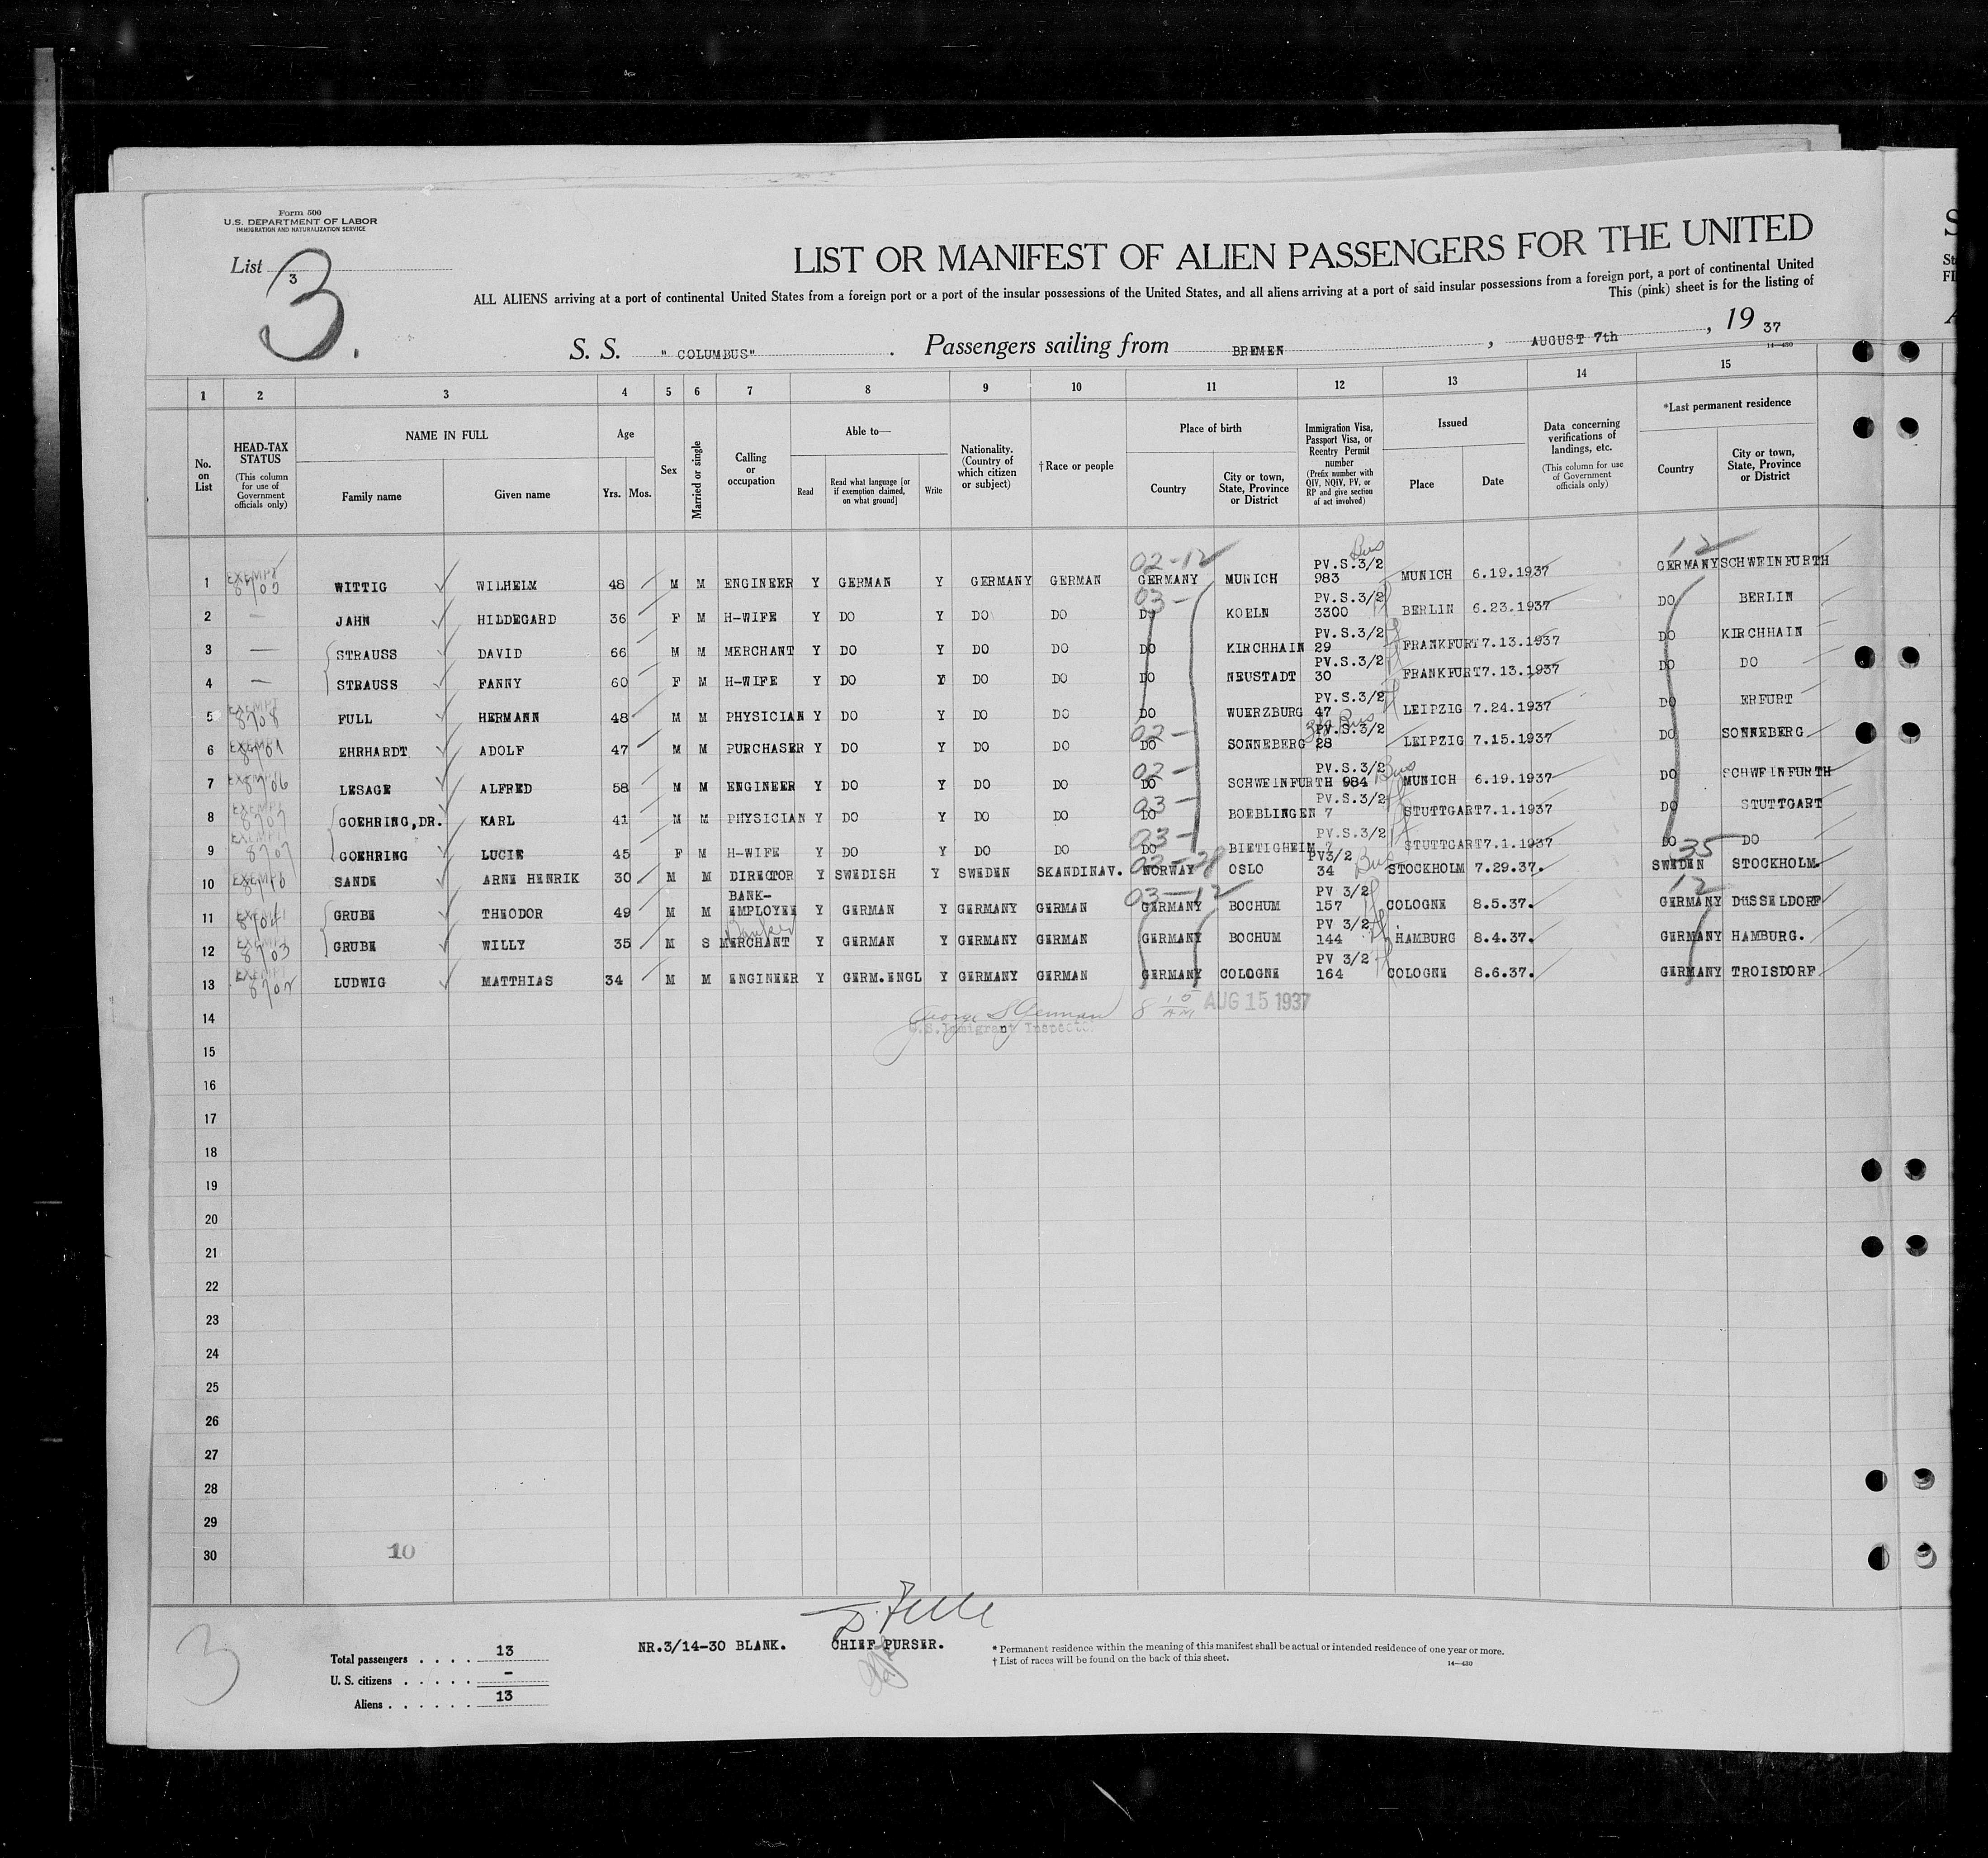 Form 500
U.S. DEPARTMENT OF LABOR
IMMIGRATION AND NATURALIZATION SERVICE
List 3
3.
LIST OR MANIFEST OF ALIEN PASSENGERS FOR THE UNITED
ALL ALIENS arriving at a port of continental United States from a foreign port or a port of the insular possessions of the United States, and all aliens arriving at a port of said insular possessions from a foreign port, a port of continental United
This (pink) sheet is for the listing of
S. S. "COLUMBUS" . Passengers sailing from BREMEN , AUGUST 7th , 19 37
14—430
1 2 3 4 5 6 7 8 9 10 11 12 13 14 15
No. on List
HEAD-TAX STATUS (This column for use of Government officials only)
NAME IN FULL
Family name
Given name
Age
Yrs. Mos.
Sex
Married or single
Calling or occupation
Able to—
Read
Read what language [or if exemption claimed, on what ground]
Write
Nationality. (Country of which citizen or subject)
†Race or people
Place of birth
Country
City or town, State, Province or District
Immigration Visa, Passport Visa, or Reentry Permit number (Prefix number with QIV, NQIV, PV, or RP and give section of act involved)
Issued
Place
Date
Data concerning verifications of landings, etc. (This column for use of Government officials only)
*Last permanent residence
Country
City or town, State, Province or District
02-12 Bus 12
1 EXEMPT WITTIG WILHELM 48 M M ENGINEER Y GERMAN Y GERMANY GERMAN GERMANY MUNICH PV.S.3/2 983 MUNICH 6.19.1937 GERMANY SCHWEINFURTH
03-
2 — JAHN HILDEGARD 36 F M H-WIFE Y DO Y DO DO DO KOELN PV.S.3/2 3300 BERLIN 6.23.1937 DO BERLIN
3 — STRAUSS DAVID 66 M M MERCHANT Y DO Y DO DO DO KIRCHHAIN PV.S.3/2 29 FRANKFURT 7.13.1937 DO KIRCHHAIN
4 — STRAUSS FANNY 60 F M H-WIFE Y DO Y DO DO DO NEUSTADT PV.S.3/2 30 FRANKFURT 7.13.1937 DO DO
5 EXEMPT 8708 FULL HERMANN 48 M M PHYSICIAN Y DO Y DO DO DO WUERZBURG PV.S.3/2 47 LEIPZIG 7.24.1937 DO ERFURT
02- Bus
6 EXEMPT 8701 EHRHARDT ADOLF 47 M M PURCHASER Y DO Y DO DO DO SONNEBERG PV.S.3/2 28 LEIPZIG 7.15.1937 DO SONNEBERG
02- Bus
7 EXEMPT 8706 LESAGE ALFRED 58 M M ENGINEER Y DO Y DO DO DO SCHWEINFURTH PV.S.3/2 984 MUNICH 6.19.1937 DO SCHWEINFURTH
03-
8 EXEMPT 8707 GOEHRING,DR. KARL 41 M M PHYSICIAN Y DO Y DO DO DO BOEBLINGEN PV.S.3/2 7 STUTTGART 7.1.1937 DO STUTTGART
03-
9 EXEMPT 8707 GOEHRING LUCIE 45 F M H-WIFE Y DO Y DO DO DO BIETIGHEIM PV.S.3/2 7 STUTTGART 7.1.1937 DO DO
02-28 Bus 35
10 EXEMPT SANDE ARNE HENRIK 30 M M DIRECTOR Y SWEDISH Y SWEDEN SKANDINAV. NORWAY OSLO PV3/2 34 STOCKHOLM 7.29.37. SWEDEN STOCKHOLM.
03-12 12
11 EXEMPT 8704 GRUBE THEODOR 49 M M BANK-EMPLOYEE Y GERMAN Y GERMANY GERMAN GERMANY BOCHUM PV 3/2 157 COLOGNE 8.5.37. GERMANY DÜSSELDORF
Banker
12 EXEMPT 8703 GRUBE WILLY 35 M S MERCHANT Y GERMAN Y GERMANY GERMAN GERMANY BOCHUM PV 3/2 144 HAMBURG 8.4.37. GERMANY HAMBURG.
13 EXEMPT 8702 LUDWIG MATTHIAS 34 M M ENGINEER Y GERM.ENGL Y GERMANY GERMAN GERMANY COLOGNE PV 3/2 164 COLOGNE 8.6.37. GERMANY TROISDORF
14 8 10 AM AUG 15 1937
U.S. Immigrant Inspector
15
16
17
18
19
20
21
22
23
24
25
26
27
28
29
30
10
3
Total passengers . . . . 13
U. S. citizens . . . . . –
Aliens . . . . . . 13
NR.3/14-30 BLANK. CHIEF PURSER.
* Permanent residence within the meaning of this manifest shall be actual or intended residence of one year or more.
† List of races will be found on the back of this sheet.
14—430